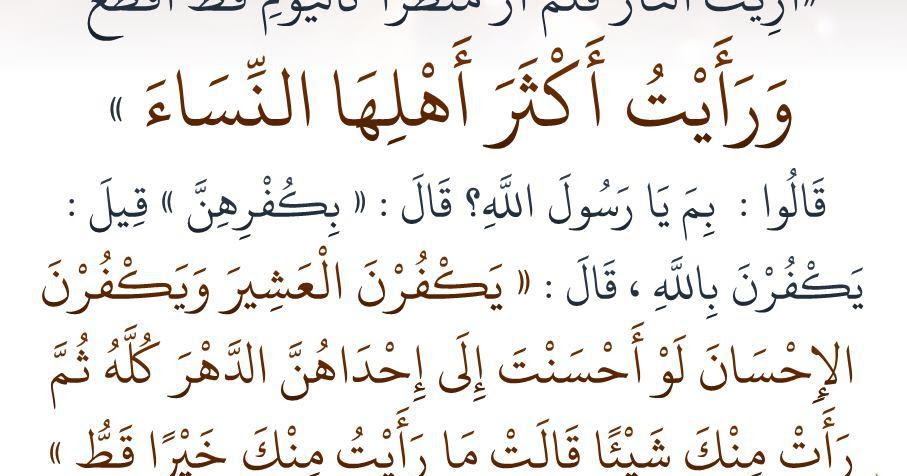 «أُرِيتُ النَّارَ فَلَمْ أَرَ مَنْظَرًا كَالْيَوْمِ قَطُّ أَفْظَعَ
وَرَأَيْتُ أَكْثَرَ أَهْلِهَا النِّسَاءَ »
قَالُوا : بِمَ يَا رَسُولَ اللَّهِ؟ قَالَ : « بِكُفْرِهِنَّ » قِيلَ :
يَكْفُرْنَ بِاللَّهِ ، قَالَ : « يَكْفُرْنَ الْعَشِيرَ وَيَكْفُرْنَ
الإِحْسَانَ لَوْ أَحْسَنْتَ إِلَى إِحْدَاهُنَّ الدَّهْرَ كُلَّهُ ثُمَّ
رَأَتْ مِنْكَ شَيْئًا قَالَتْ مَا رَأَيْتُ مِنْكَ خَيْرًا قَطُّ »